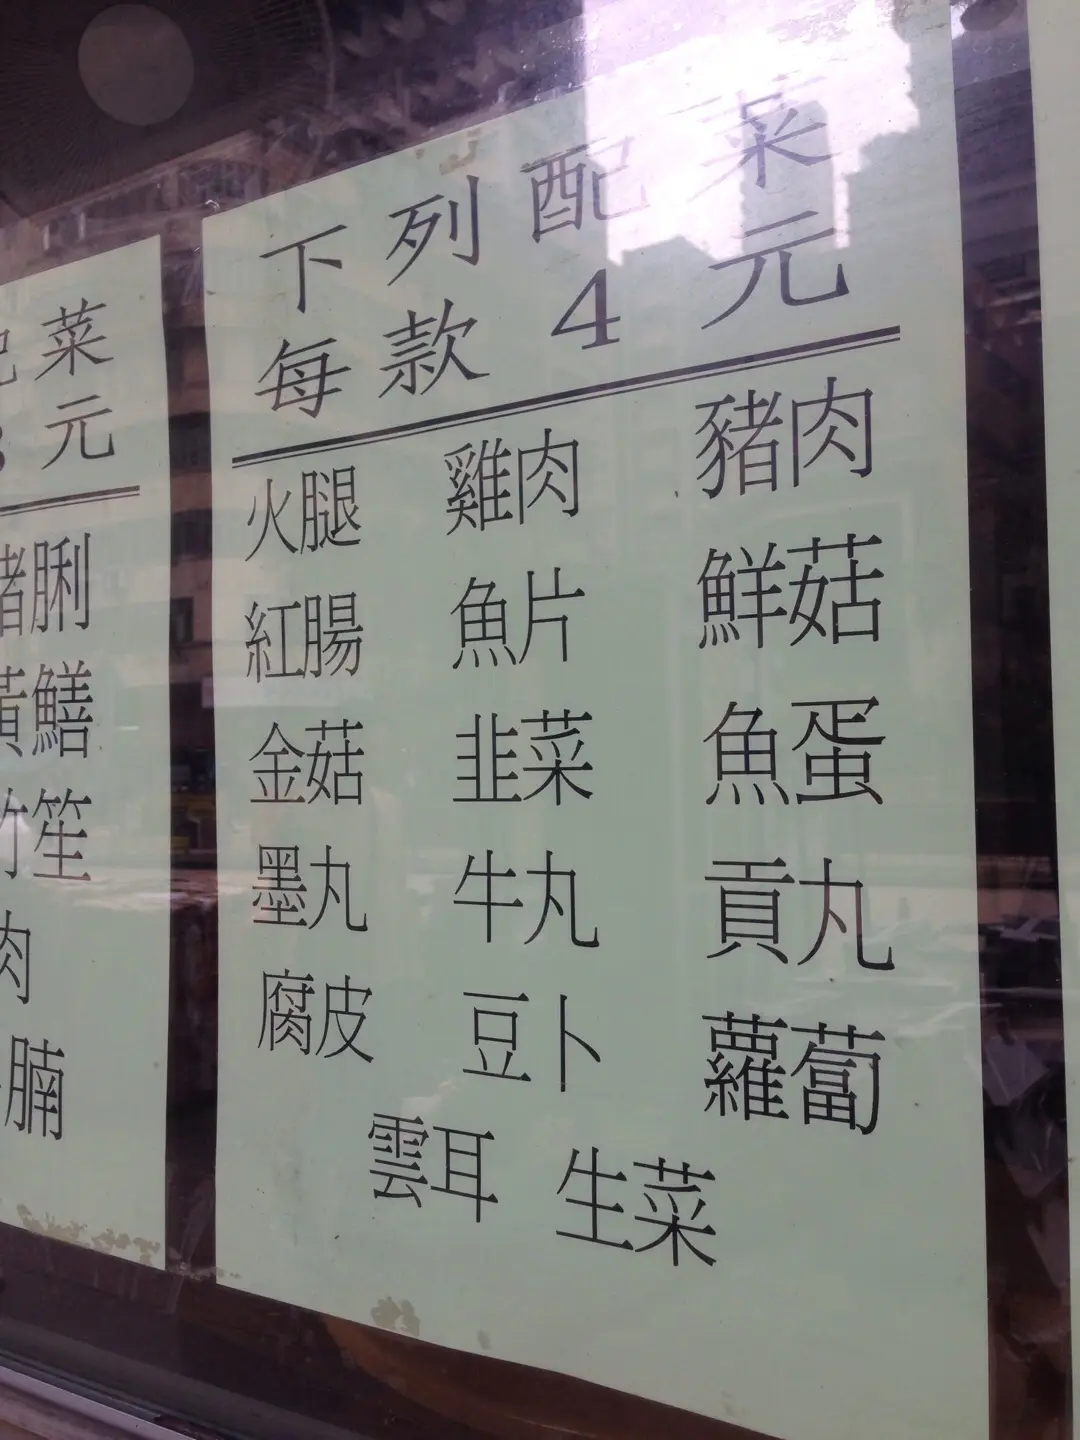 菜
元
豬脷
黃鱔
竹笙
肉
腩
下列配菜
每款4元
火腿 雞肉 豬肉
紅腸 魚片 鮮菇
金菇 韭菜 魚蛋
墨丸 牛丸 貢丸
腐皮 豆卜 蘿蔔
雲耳 生菜